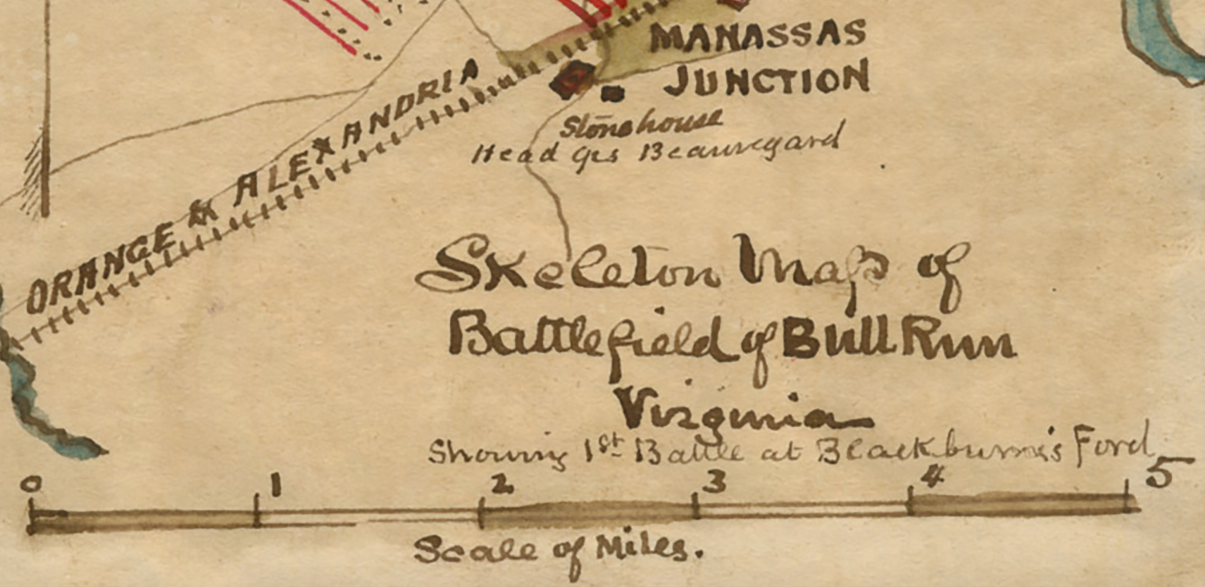 MANASSAS
JUNCTION
ORANGE & ALEXANDRIA
Stonehouse
Head Qrs Beauregard
Skeleton Map of
Battlefield of Bull Run
Virginia
Showing 1st Battle at Blackburn's Ford
0 1 2 3 4 5
Scale of Miles.